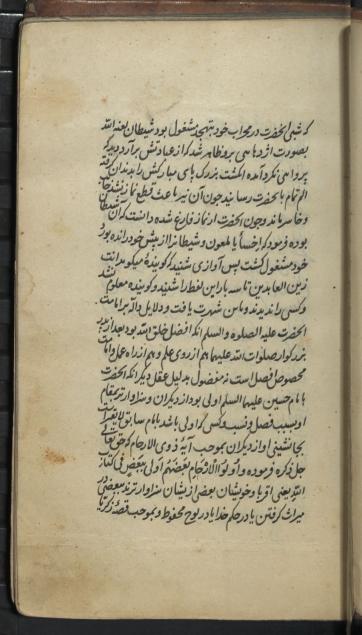 که شبی آنحضرت در محراب خود بتهجد مشغول بود شیطان لعنه الله
بصورت اژدهایی برو ظاهر شد که از عبادتش برآرد دید که
پروایی نکرد آمده انکشت بزرک پای مبارکش را بدندان کرفته
الم تمام بآنحضرت رسانید چون آن نیز باعث قطع نماز نشد
و خاسر ماند و چون آنحضرت از نماز فارغ شده دانست که آن شیطان
بوده فرمود که اخسأ یا ملعون و شیطانرا از پیش خود رانده بورد
خود مشغول کشت پس آوازی شنید که کوینده میکوید انت
زین العابدین تا سه بار این لفظ را شنید و کوینده معلوم نشد
و کسی را ندیدند و باین شهرت یافت و دلایل دال بر امامت
آنحضرت علیه الصلوه و السلم آنکه افضل خلق الله بود بعد از پدر
بزرکوار صلوات الله علیهما هم از روی علم و هم از راه عمل و امامت
مخصوص افضل است نه مفضول بدلیل عقل دیکر آنکه آنحضرت
بامام حسین علیهما السلم اولی بود از دیکران و سزاوارتر بمقام
او بسبب فضل و نسب و کسی که اولی باشد بامام سابق
بجانشینی او از دیکران بموجب آیهٔ ذوی الارحام که حق تعالی
جل ذکره فرموده و اولوا الارحام بعضهم اولی ببعض فی کتاب
الله یعنی اقربا و خویشان بعضی ازیشان سزاوارترند ببعضی در
میراث کرفتن یا در حکم خدا یا در لوح محفوظ و بموجب قصهٔ زکریا